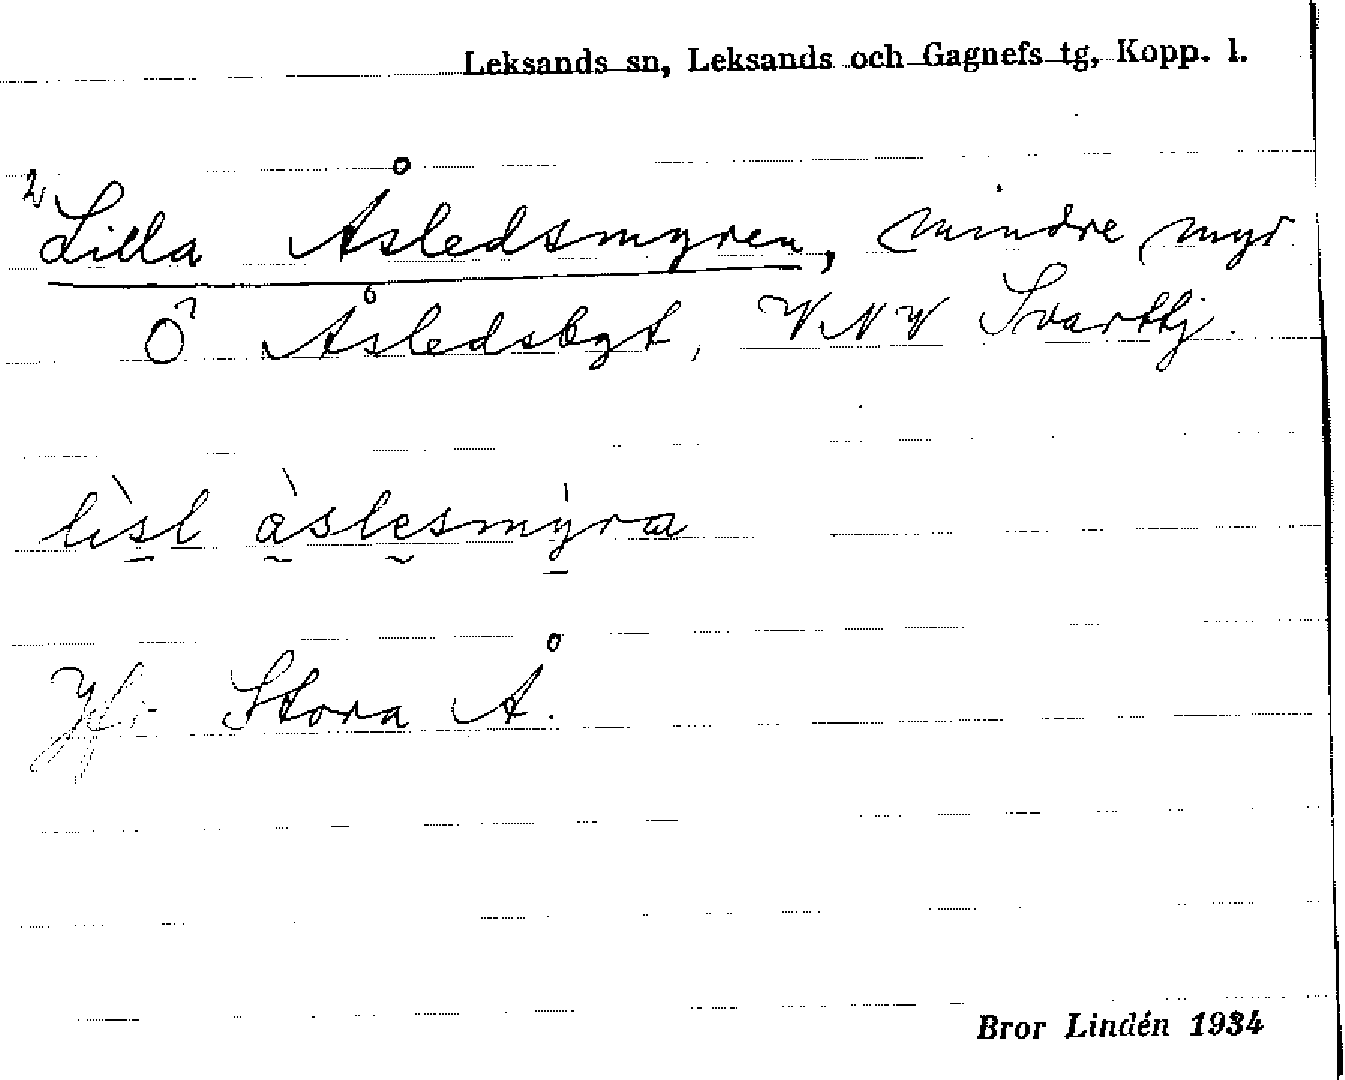 Leksands sn, Leksands och Gagnefs tg, Kopp. l.
2 Lilla Åsledsmyren, mindre myr
Ö Åsledsbgt, VNV Svarttj.
lìsl àslesmy̠ra
Jfr Stora Å.
Bror Lindén 1934